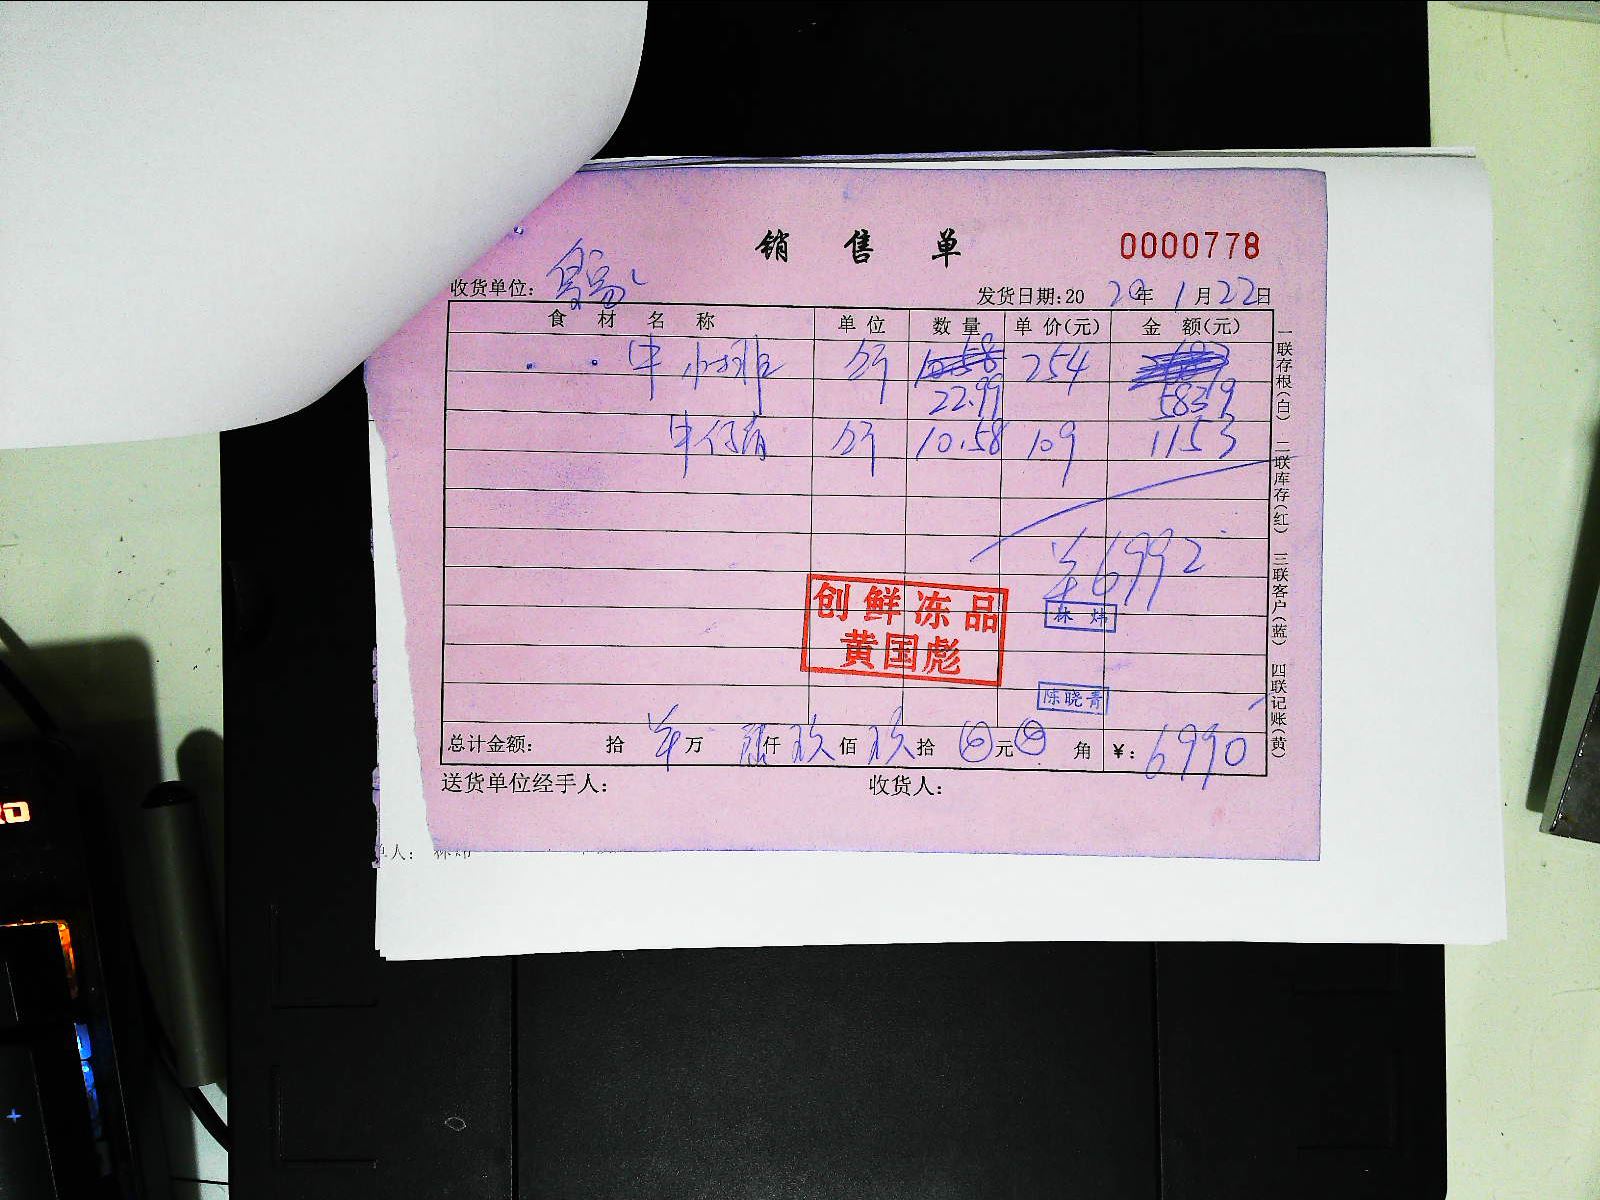 销 售 单
0000778
收货单位:
发货日期:20 20年 1月22日
食 材 名 称 单位 数量 单价(元) 金 额(元)
牛小排 公斤 254
22.99 5839
牛仔骨 公斤 10.58 109 1153
¥6992
创鲜冻品
黄国彪
林 炜
陈晓青
总计金额: 拾 万 陆仟 玖佰 玖拾 元 角 ¥: 6990
送货单位经手人: 收货人:
一联存根(白) 二联库存(红) 三联客户(蓝) 四联记账(黄)
单人: 林炜